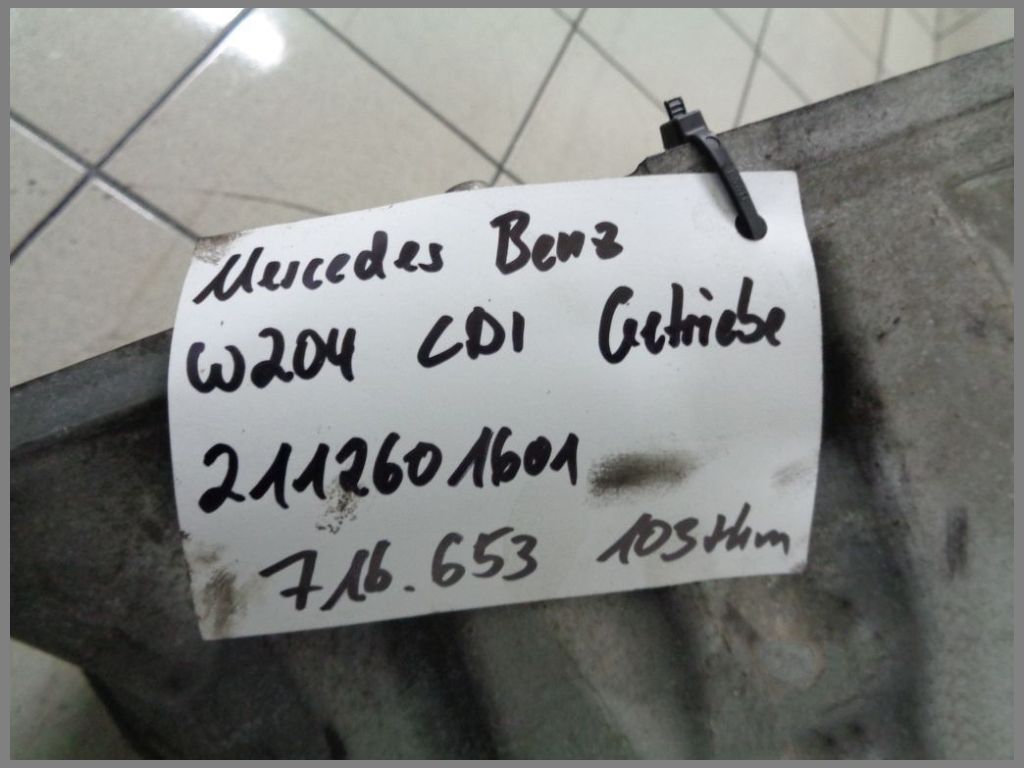 Mercedes Benz
W204 CDI Getriebe
2112601601
716.653 103tkm